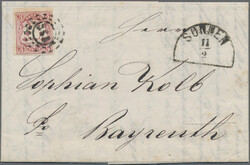 SONNEN
11
3
Herrn
Sophian Kolb
Bayreuth